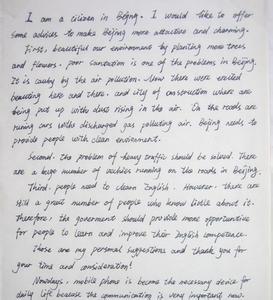 I am a citizen in Beijing. I would like to offer
some advices to make Beijing more attractive and charming.
First, beautiful our environment by planting more trees
and flowers. poor sanitation is one of the problems in Beijing.
It is caused by the air pollution. Now there were erected
beauting here and there. and city of construction where are
being put up with dust rising in the air. On the roads are
runing cars with discharged gas polluting air. Beijing needs to
provide people with clean enviroment.
Second. the problem of heavy traffic should be solved. There
are a huge number of vechies running on the roads in Beijing.
Third. people need to learn English. However. there are
still a great number of people who know little about it.
therefore, the government should provide more opportunities
for people to learn and improve their English competence.
Those are my personal suggestions and thank you for
your time and consideration!
Nowdays, mobile phone is become the necessary device for
daily life because the communication is very important now.